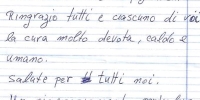 Ringrazio tutti e ciascuno di voi
la cura molto devota, calda e
umano.
Salute per tutti noi.